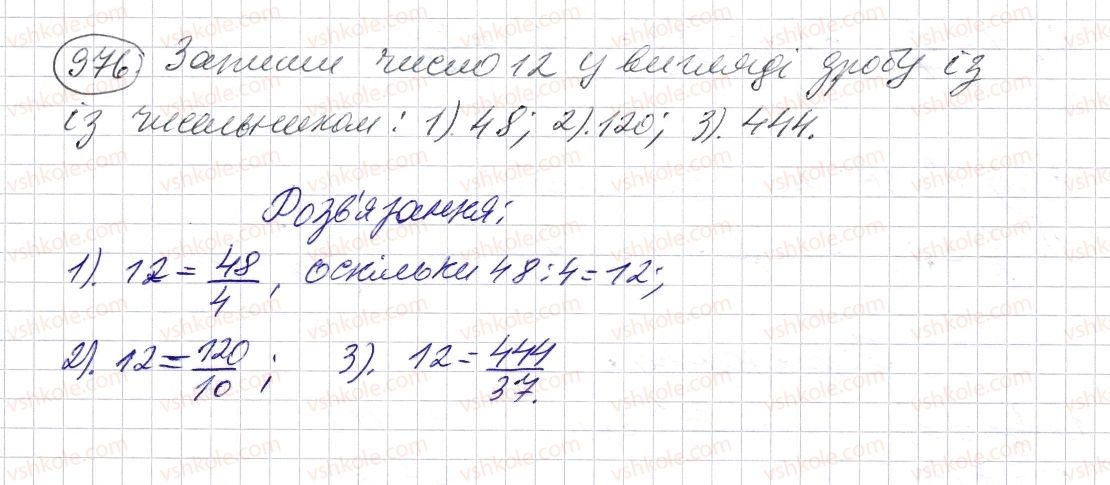 976) Запиши число 12 у вигляді дробу із
із чисельником: 1). 48; 2). 120; 3). 444.
Розв'язання:
1). 12 = 48/4, оскільки 48 : 4 = 12;
2). 12 = 120/10; 3). 12 = 444/37.